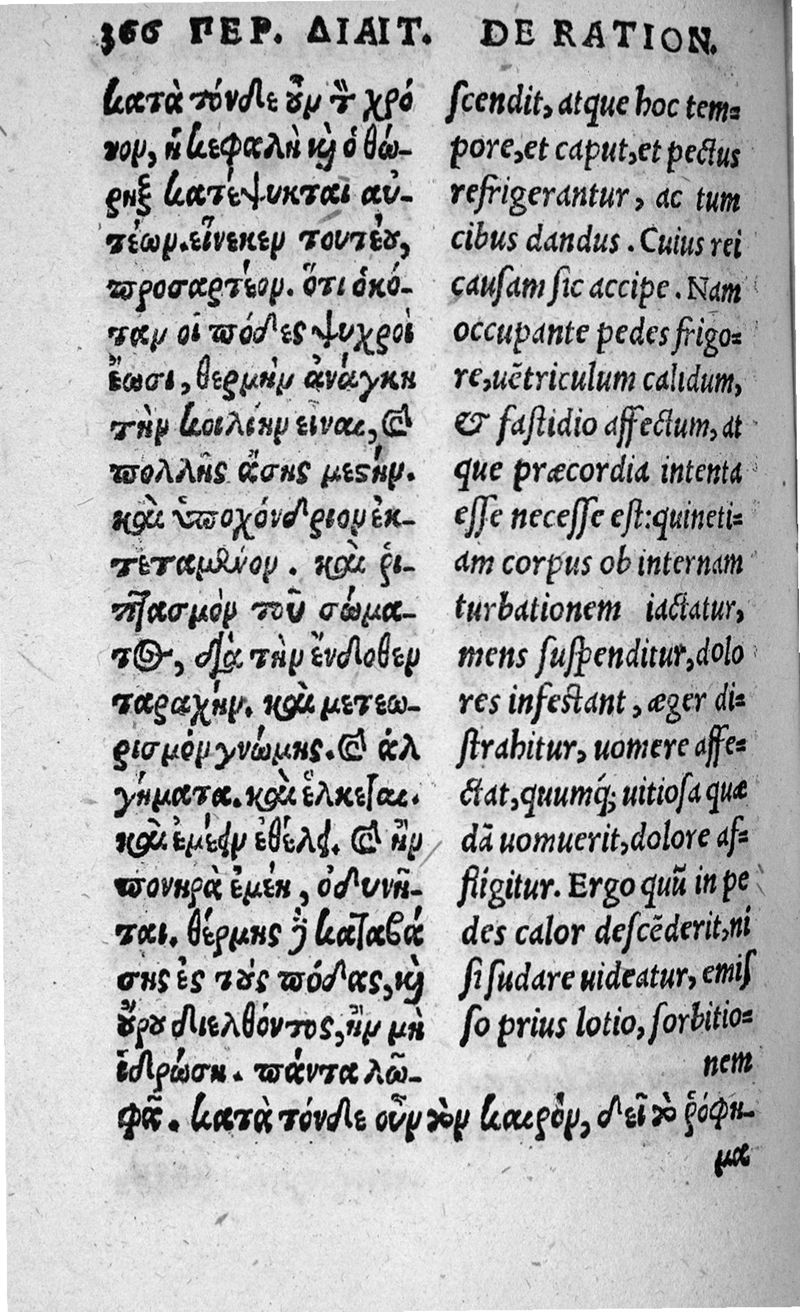 366 ΠΕΡ. ΔΙΑΙΤ. DE RATION.
κατὰ τόνδε οὖμ τὸν χρό
νομ, ἡ κεφαλὴ καὶ ὁ θώ-
ρηξ κατέψυκται αὐ-
τέωμ. εἵνεκεμ τουτέου,
προσαρτέομ. ὅτι ὁκό-
ταμ οἱ πόδες ψυχροὶ
ἔωσι, θερμὴμ ἀνάγκη
τὴμ κοιλίημ εἶναι, καὶ
πολλῆς ἄσης μεστήμ.
καὶ ὑποχόνδριομ ἐκ-
τεταμένομ. καὶ ῥι-
πτασμὸμ τοῦ σώμα-
τος, διὰ τὴμ ἔνδοθεμ
ταραχήμ. καὶ μετεω-
ρισμὸμ γνώμης. καὶ ἀλ
γήματα. καὶ ἕλκεται.
καὶ ἐμέειμ ἐθέλει. καὶ ἢμ
πονηρὰ ἐμέῃ, ὀδυνῆ-
ται. θέρμης δὲ καταβά
σης ἐς τοὺς πόδας, καὶ
οὔρου διελθόντος, ἢμ μὴ
ἱδρώσῃ. πάντα λω-
φᾷ. κατὰ τόνδε οὖμ τὸμ καιρὸμ, δεῖ τὸ ῥόφη-
μα
scendit, atque hoc tem=
pore, et caput, et pectus
refrigerantur, ac tum
cibus dandus. Cuius rei
causam sic accipe. Nam
occupante pedes frigo=
re, uētriculum calidum,
& fastidio affectum, at
que præcordia intenta
esse necesse est: quineti=
am corpus ob internam
turbationem iactatur,
mens suspenditur, dolo
res infestant, æger di=
strahitur, uomere affe=
ctat, quumq́; uitiosa quæ
dā uomuerit, dolore af=
fligitur. Ergo quū in pe
des calor descēderit, ni
si sudare uideatur, emis
so prius lotio, sorbitio=
nem